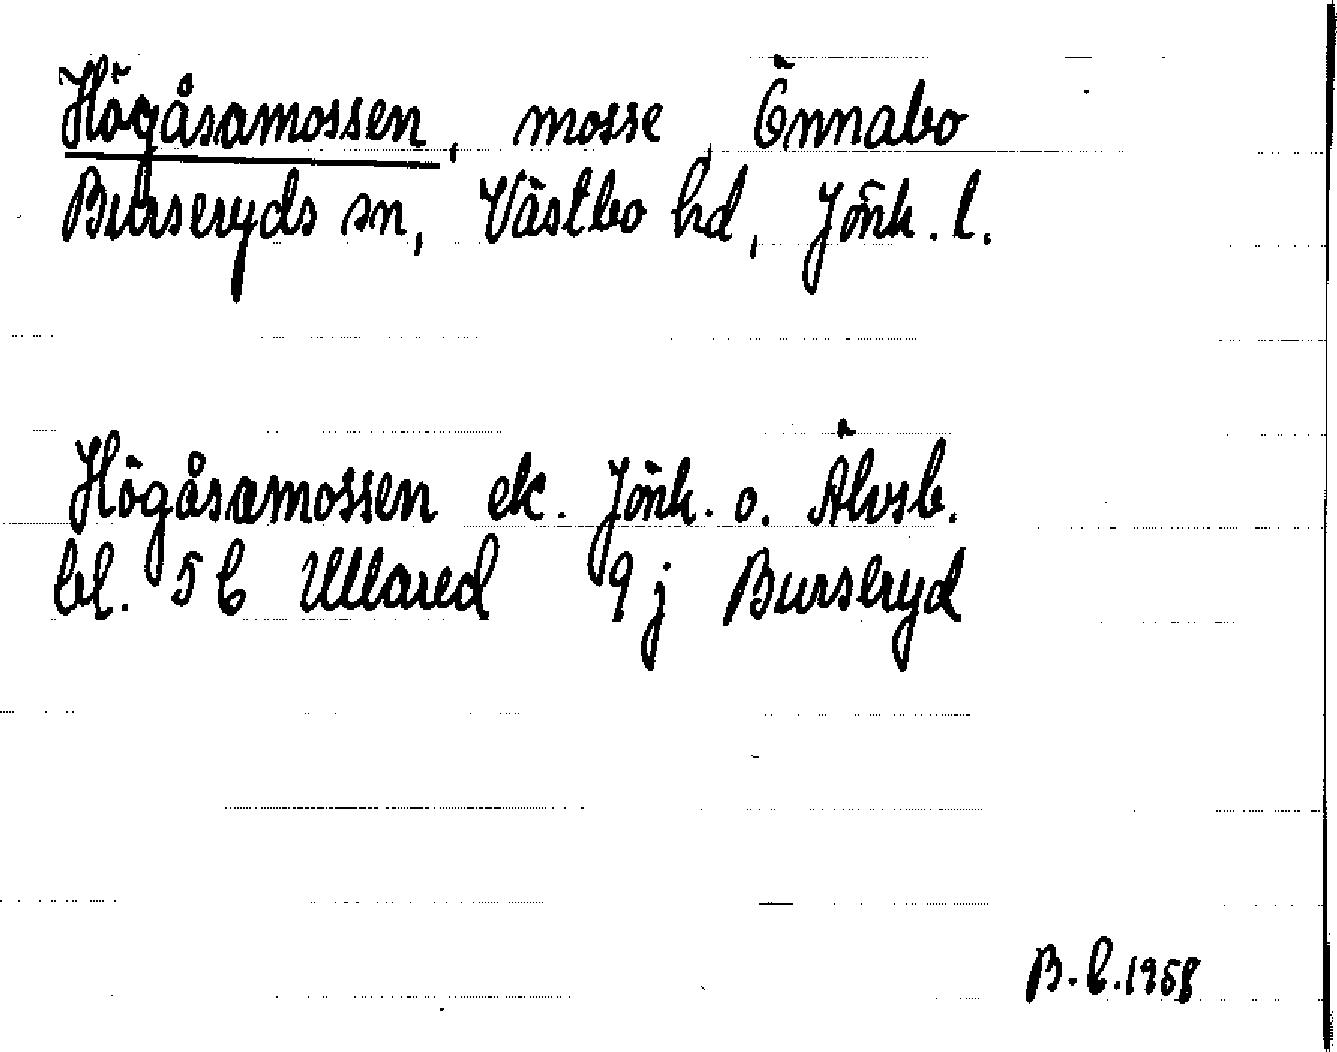 Högåsamossen, mosse, Önnabo
Burseryds sn, Västbo hd, Jönk. l.
Högåsamossen ek. Jönk. o. Älvsb.
bl. 5 C Ullared 9 j Burseryd
B.C.1958